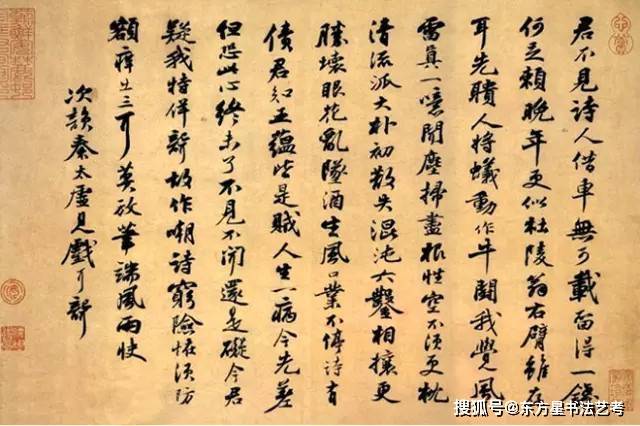 君不見詩人借車無可載留得一錢
何足賴晚年更似杜陵翁右臂雖存
耳先聵人將蟻動作牛鬪我覺風
雷真一噫聞塵掃盡根性空不須更枕
清流派大朴初散失混沌六鑿相攘更
勝壞眼花亂墜酒生風口業不停詩有
債君知五蘊皆是賊人生一病今先差
但恐此心終未了不見不聞還是礙今君
疑我特佯聾故作嘲詩窮險怪須防
額痒出三耳莫放筆端風雨快
次韻秦太虛見戲耳聾
搜狐号@东方星书法艺考